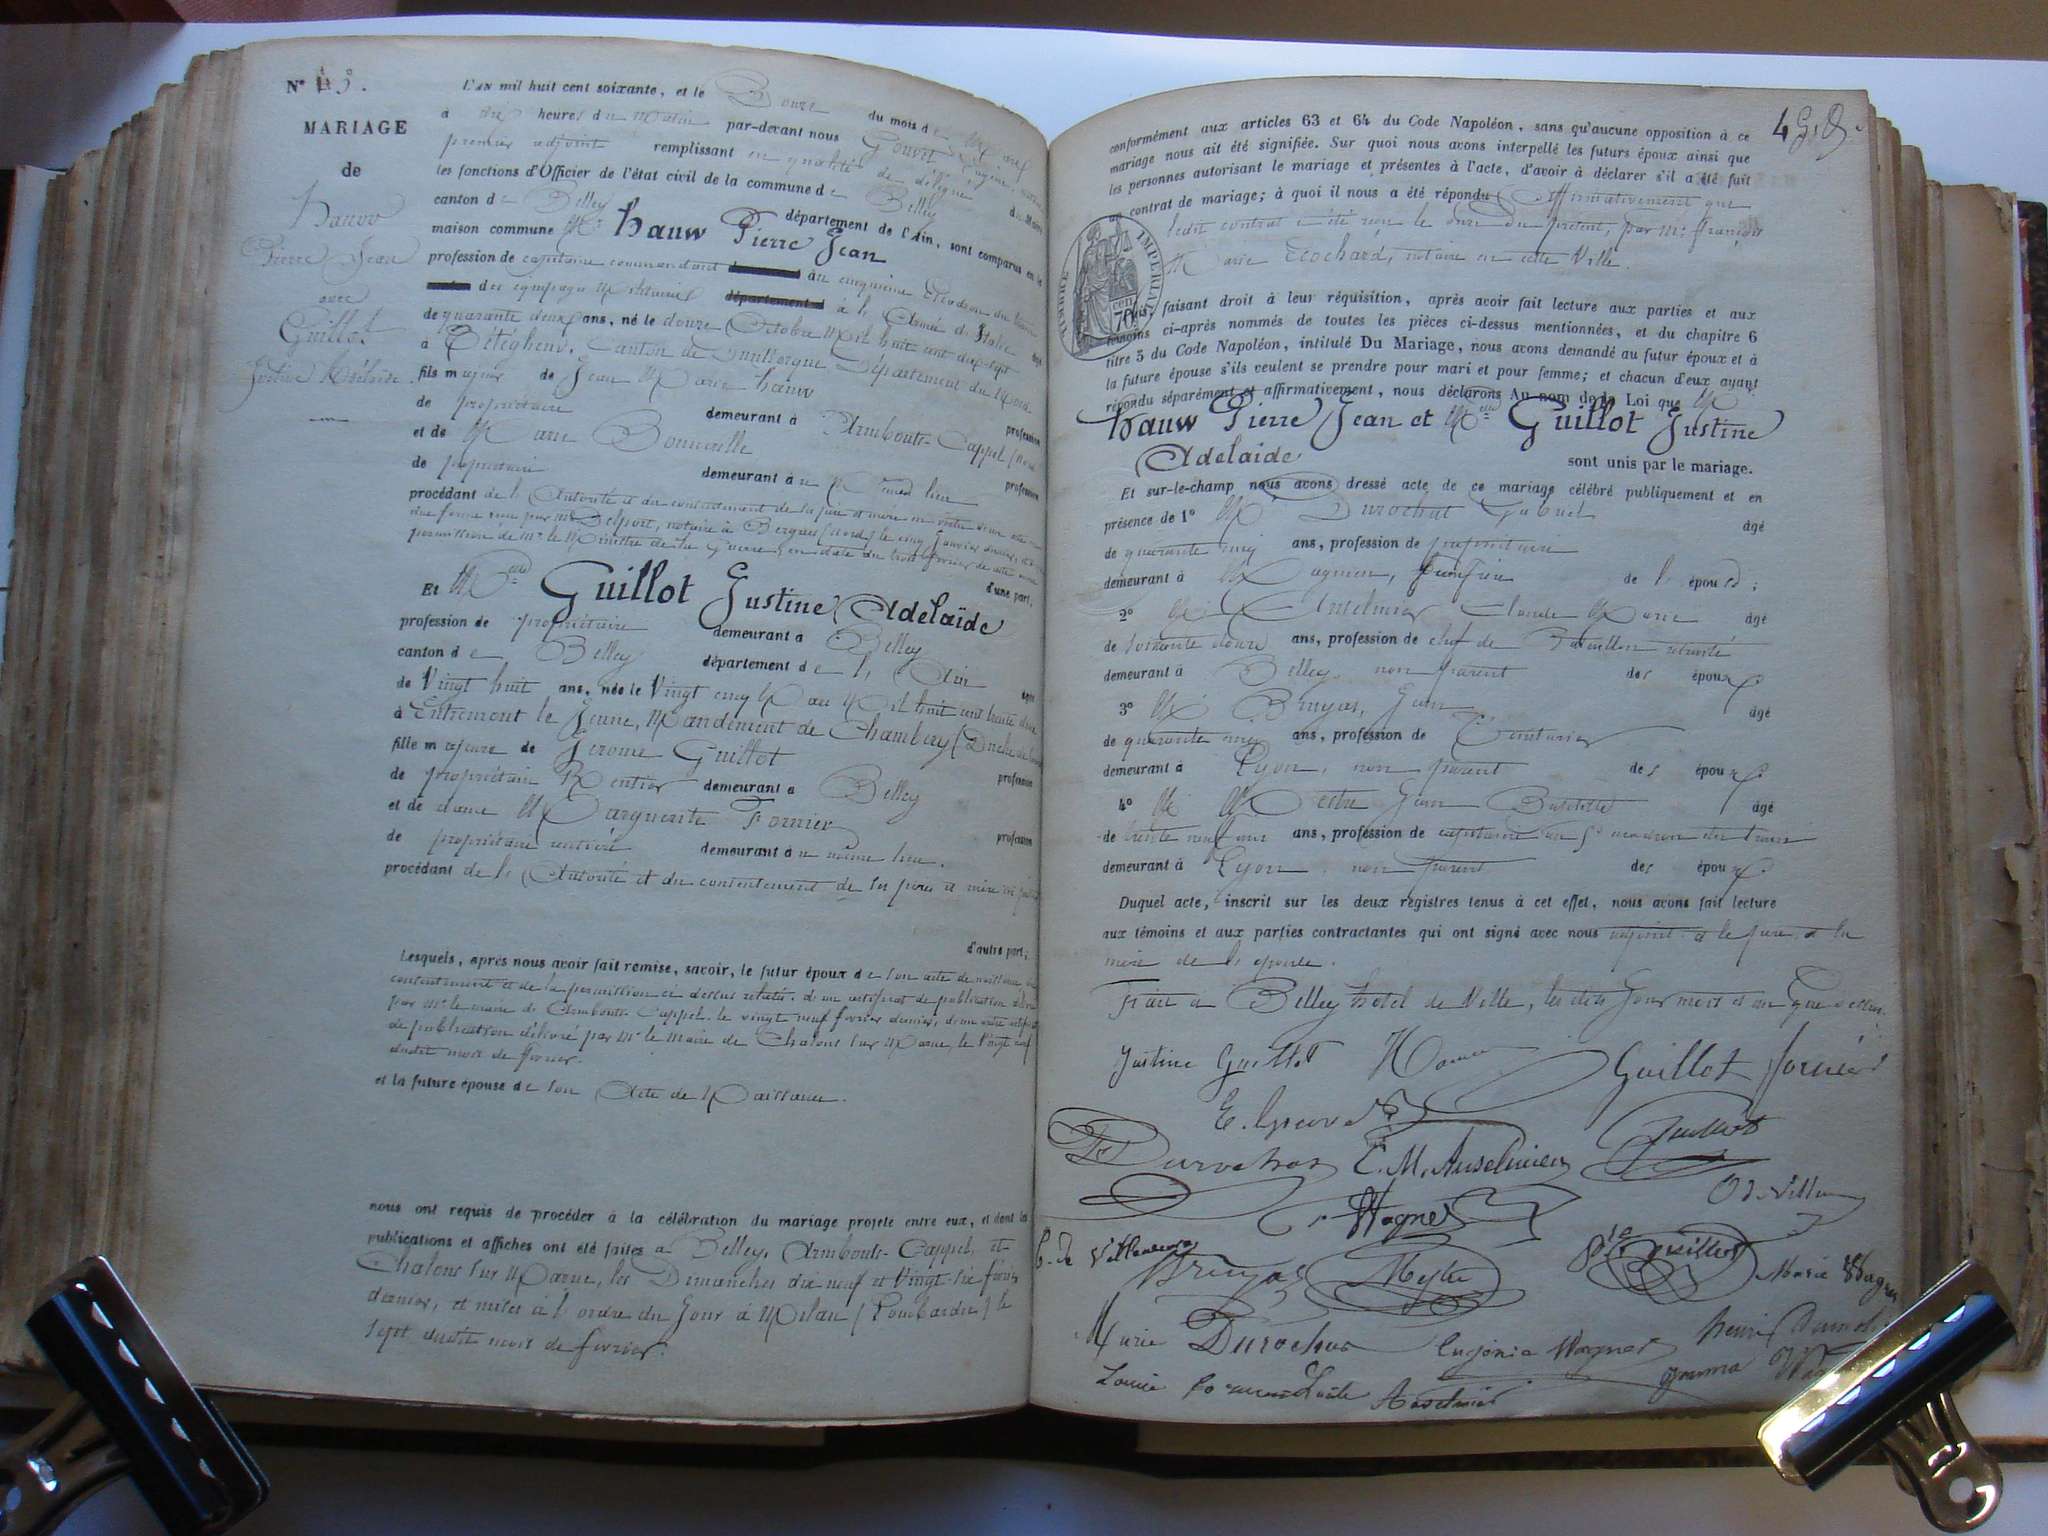 MARIAGE
de
Hauw
Pierre Jean
avec
Guillot
Justine Adélaïde.
L'AN mil huit cent soixante, et le Douze du mois de Mars
à dix heures du matin par-devant nous
premier adjoint remplissant en qualité de délégué du Maire
les fonctions d'Officier de l'état civil de la commune de Belley
canton de Belley département de l'Ain, sont comparus en la
maison commune Mr Hauw Pierre Jean
profession de capitaine commandant au cinquième Escadron du train
des équipages Militaires département d à l'Armée d'Italie âgé
de quarante deux ans, né le douze Octobre Mil huit cent dix-sept
à Téteghem, Canton de Dunkerque Département du Nord
fils majeur de Jean Marie hauw profession
de propriétaire demeurant à Armbouts-Cappel (nord
et de Marie profession
de propriétaire demeurant à u Même lieu
procédant de l'Autorité et du consentement de ses père et mère en vertu
notaire à Bergues (nord) le cinq Janvier dernier, et
permission de Mr le Ministre de la Guerre, en date du trois février de cette année
d'une part,
Et Melle Guillot Justine Adelaïde
profession de propriétaire demeurant à Belley
canton de Belley département de l'Ain âgée
de Vingt huit ans, née le Vingt cinq Mil huit cent trente
à Entremont le Jeune, Mandement de Chambéry (Duché de
fille majeure de Jerome Guillot profession
de propriétaire Rentier demeurant à Belley
et de dame Marguerite Fornier profession
de propriétaire rentière demeurant à u même lieu.
procédant de l'Autorité et du consentement de ses père et mère
d'autre part;
Lesquels, après nous avoir fait remise, savoir, le futur époux de son acte de naissance, du
consentement et de la permission ci dessus relatés. d'un certificat de publication délivré
par Mr le maire de Armbouts-Cappel. le vingt neuf février dernier, d'un autre certificat
de publication délivré par Mr le Maire de Chalons sur Marne, le Vingt neuf
dudit mois de février.
et la future épouse de son Acte de Naissance.
nous ont requis de procéder à la célébration du mariage projeté entre eux, et dont les
publications et affiches ont été faites à Belley, Armbouts-Cappel, et
Chalons sur Marne, les Dimanches dix neuf et Vingt-six février
dernier, et mises à l'ordre du Jour à Milan (Lombardie) le
sept dudit mois de février.
conformément aux articles 63 et 64 du Code Napoléon, sans qu'aucune opposition à ce
mariage nous ait été signifiée. Sur quoi nous avons interpellé les futurs époux ainsi que
les personnes autorisant le mariage et présentes à l'acte, d'avoir à déclarer s'il a été fait
un contrat de mariage; à quoi il nous a été répondu Affirmativement que
ledit contrat a été reçu le onze du présent, par Mr françois
Marie Trochard, notaire en cette Ville.
TIMBRE IMPERIAL
cen 70
Puis, faisant droit à leur réquisition, après avoir fait lecture aux parties et aux
témoins ci-après nommés de toutes les pièces ci-dessus mentionnées, et du chapitre 6
titre 5 du Code Napoléon, intitulé Du Mariage, nous avons demandé au futur époux et à
la future épouse s'ils veulent se prendre pour mari et pour femme; et chacun d'eux ayant
répondu séparément et affirmativement, nous déclarons Au nom de la Loi que M
Hauw Pierre Jean et Melle Guillot Justine
Adelaïde sont unis par le mariage.
Et sur-le-champ nous avons dressé acte de ce mariage célébré publiquement et en
présence de 1° M Durochat Gabriel âgé
de quarante cinq ans, profession de propriétaire
demeurant à de l'épouse;
2° M Anselmier Claude Marie âgé
de soixante douze ans, profession de chef de Bataillon retraité
demeurant à Belley, non parent des époux
3° M Bruyas, Jean âgé
de quarante cinq ans, profession de Teinturier
demeurant à Lyon, non parent des époux
4° M Mestre Jean Baptiste âgé
de trente neuf ans ans, profession de capitaine au 5e escadron du train
demeurant à Lyon, non parent des époux
Duquel acte, inscrit sur les deux registres tenus à cet effet, nous avons fait lecture
aux témoins et aux parties contractantes qui ont signé avec nous adjoint et le père, et la
mère de l'épouse.
Fait à Belley hôtel de Ville, les dits Jour mois et an Que dessus.
Justine Guillot Hauw Guillot fornier
Durochat C. M. Anselmier Guillot
Wagner
Bruyas Mestre Guillot Marie Wagner
Marie Durochat Eugénie Wagner
Louise Anselmier Emma